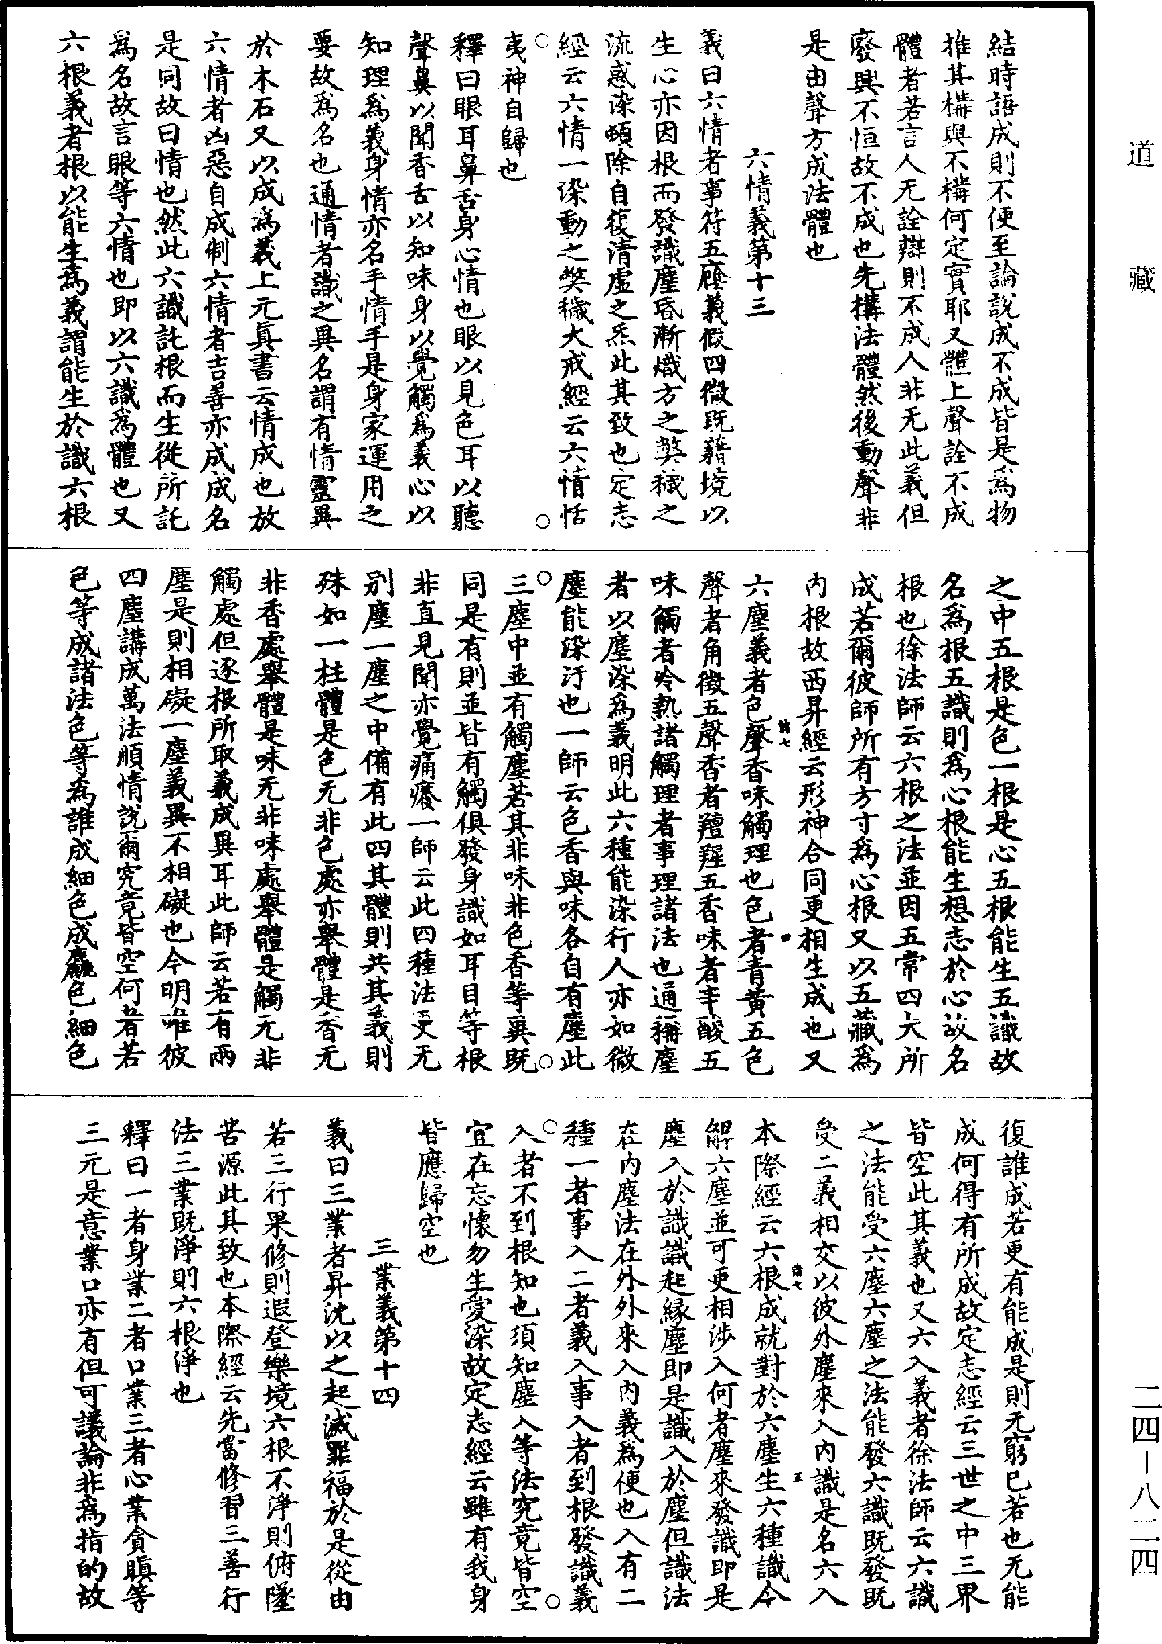 道藏
結時語成則不便至論說成不成皆是爲物
推其構與不構何定實耶又體上聲詮不成
體者若言人无詮辯則不成人非无此義但
廢興不恒故不成也先構法體然後動聲非
是由聲方成法體也
六情義第十三
義曰六情者事符五廕義假四微既藉境以
生心亦因根而發識塵昏漸熾方之弊穢之
流惑染頓除自復清虛之炁此其致也定志
經云六情一染動之弊穢大戒經云六情恬
夷神自歸也
釋曰眼耳鼻舌身心情也眼以見色耳以聽
聲鼻以聞香舌以知味身以覺觸爲義心以
知理爲義身情亦名手情手是身家運用之
要故爲名也通情者識之異名謂有情靈異
於木石又以成爲義上元真書云情成也放
六情者凶惡自成制六情者吉善亦成成名
是同故曰情也然此六識託根而生從所託
爲名故言眼等六情也即以六識爲體也又
六根義者根以能生爲義謂能生於識六根
之中五根是色一根是心五根能生五識故
名爲根五識則爲心根能生想志於心故名
根也徐法師云六根之法並因五常四大所
成若爾彼師所有方寸爲心根又以五藏爲
內根故西昇經云形神合同更相生成也又
六塵義者色聲香味觸理也色者青黃五色
聲者角徵五聲香者羶羥五香味者辛酸五
味觸者冷熱諸觸理者事理諸法也通稱塵
者以塵染爲義明此六種能染行人亦如微
塵能染汙也一師云色香與味各自有塵此
三塵中並有觸塵若其非味非色香等異既
同是有則並皆有觸俱發身識如耳目等根
非直見聞亦覺痛癢一師云此四種法更无
別塵一塵之中備有此四其體則共其義則
殊如一柱體是色无非色處亦舉體是香无
非香處舉體是味无非味處舉體是觸无非
觸處但逐根所取義成異耳此師云若有兩
塵是則相礙一塵義異不相礙也今明唯彼
四塵講成萬法順情說爾究竟皆空何者若
色等成諸法色等爲誰成細色成麤色細色
復誰成若更有能成是則无窮已若也无能
成何得有所成故定志經云三世之中三界
皆空此其義也又六入義者徐法師云六識
之法能受六塵六塵之法能發六識既發既
受二義相交以彼外塵來入內識是名六入
本際經云六根成就對於六塵生六種識今
解六塵並可更相涉入何者塵來發識即是
塵入於識識起緣塵即是識入於塵但識法
在內塵法在外外來入內義爲便也入有二
種一者事入二者義入事入者到根發識義
入者不到根知也須知塵入等法究竟皆空
宜在忘懷勿生愛染故定志經云雖有我身
皆應歸空也
三業義第十四
義曰三業者昇沈以之起滅罪福於是從由
若三行果修則遐登樂境六根不淨則俯墜
苦源此其致也本際經云先當修習三善行
法三業既淨則六根淨也
釋曰一者身業二者口業三者心業貪瞋等
三元是意業口亦有但可議論非爲指的故
二四—八二四